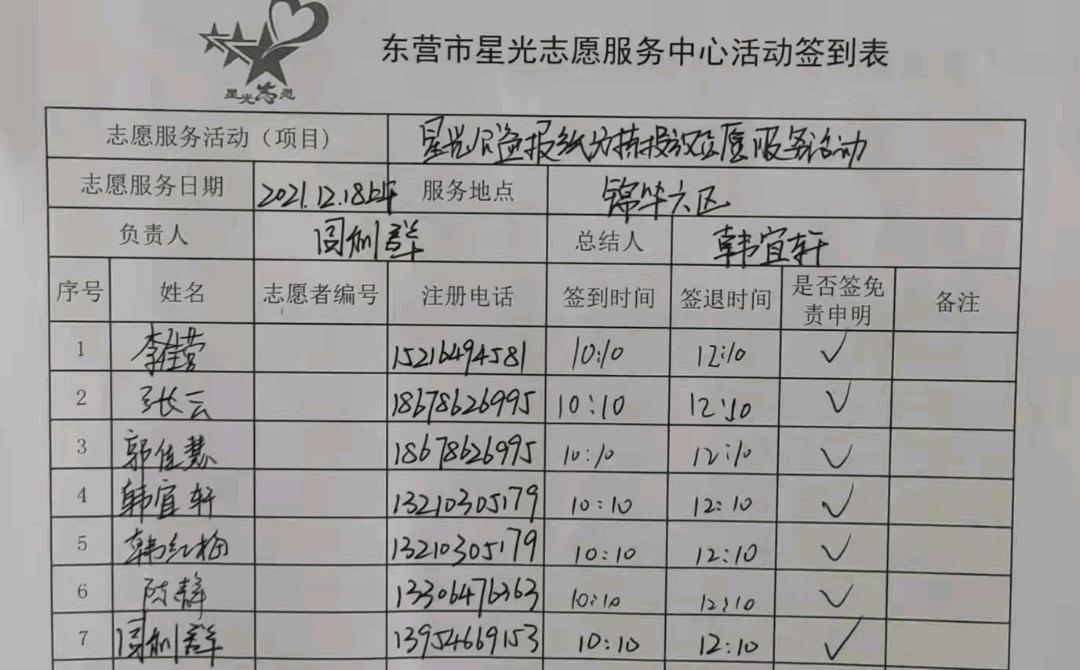 星光志愿
东营市星光志愿服务中心活动签到表
志愿服务活动（项目） 星光公益报纸分捡投放志愿服务活动
志愿服务日期 2021.12.18上午 服务地点 锦华六区
负责人 总结人 韩宜轩
序号 姓名 志愿者编号 注册电话 签到时间 签退时间 是否签免责申明 备注
1 李佳营 15216494581 10:10 12:10 ✓
2 张云 18678626995 10:10 12:10 ✓
3 郭佳慧 18678626995 10:10 12:10 ✓
4 韩宜轩 13210305179 10:10 12:10 ✓
5 韩红梅 13210305179 10:10 12:10 ✓
6 陈静 13306476363 10:10 12:10 ✓
7 13954669153 10:10 12:10 ✓